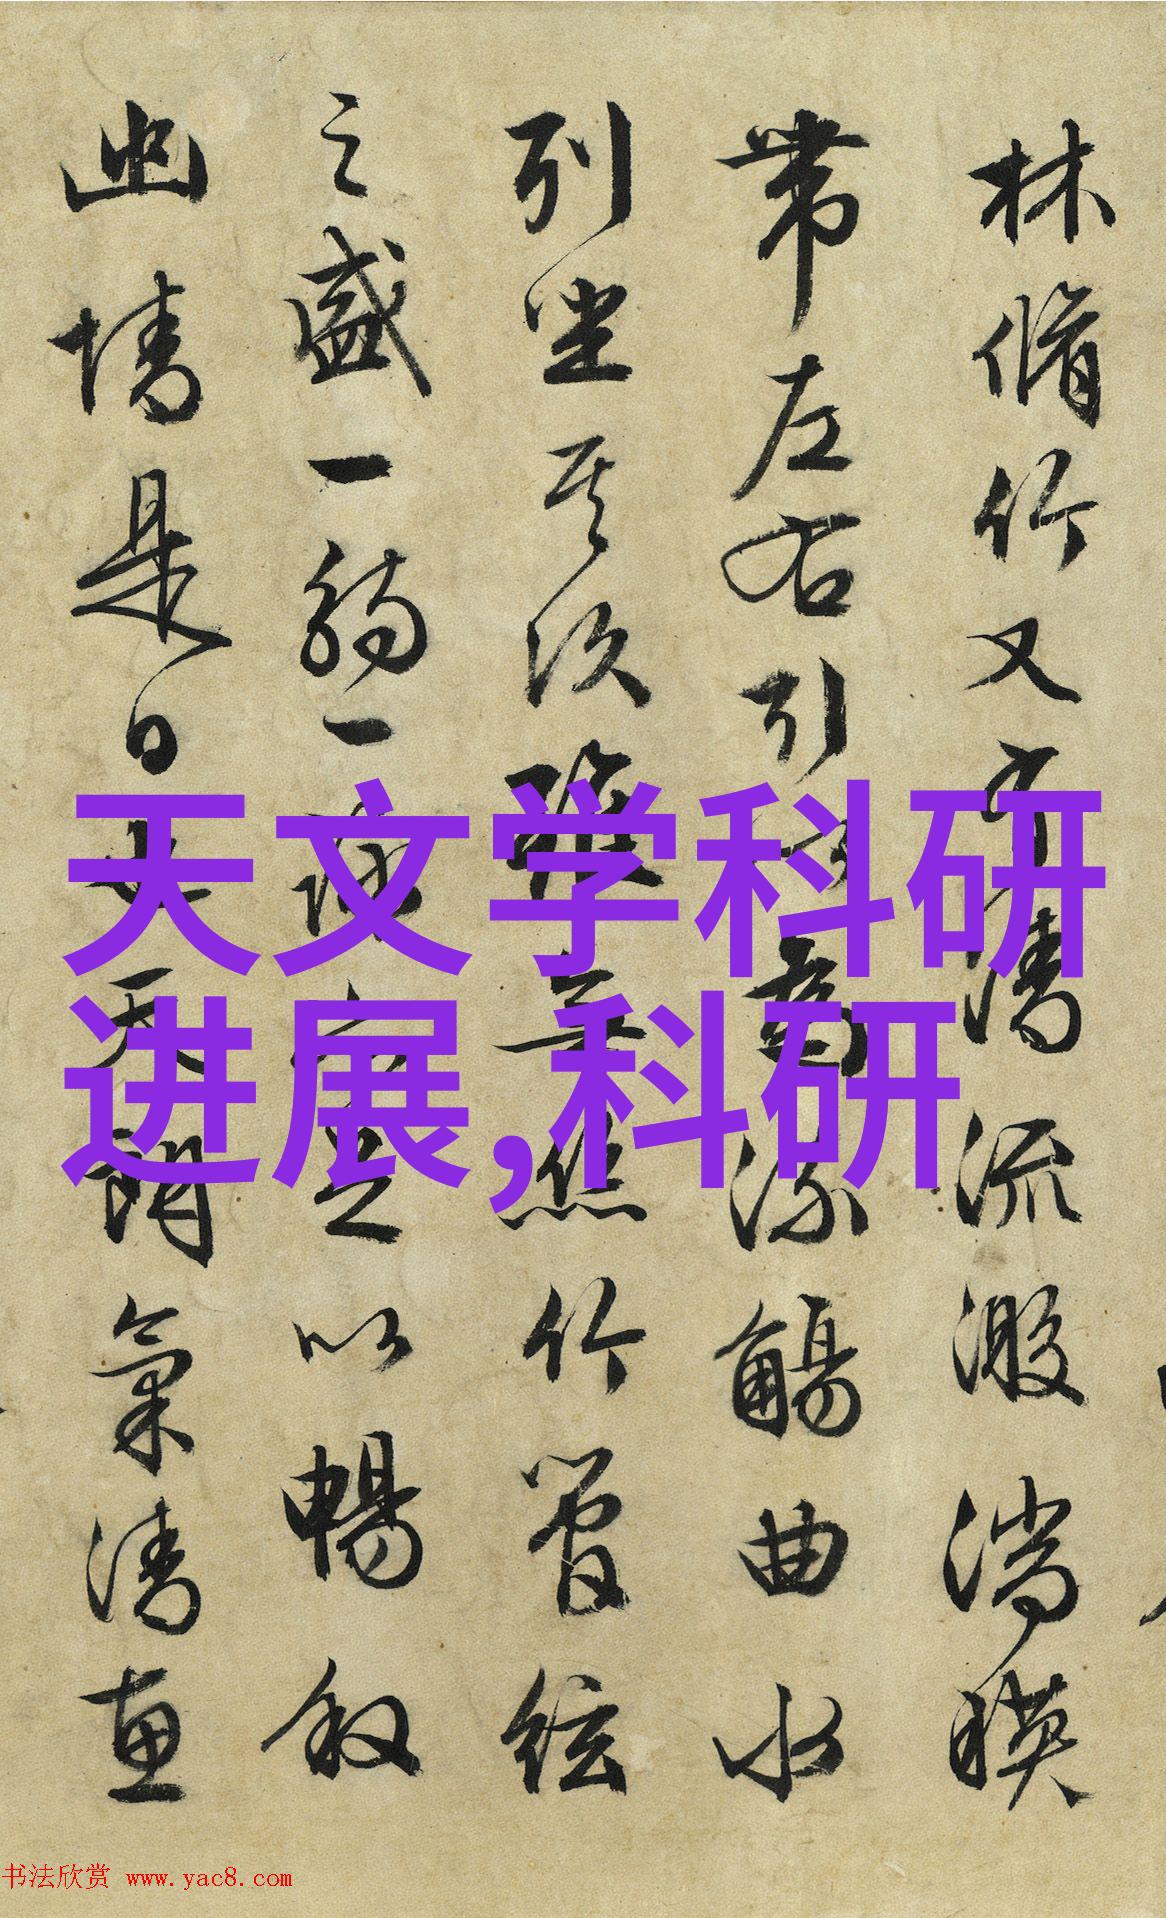 林脩竹又有清流激湍暎
帶左右引以為流觴曲水
列坐其次雖無絲竹管弦
之盛一觴一詠亦足以暢敘
幽情是日也天朗氣清惠
天文学科研
进展,科研
书法欣赏 www.yac8.com